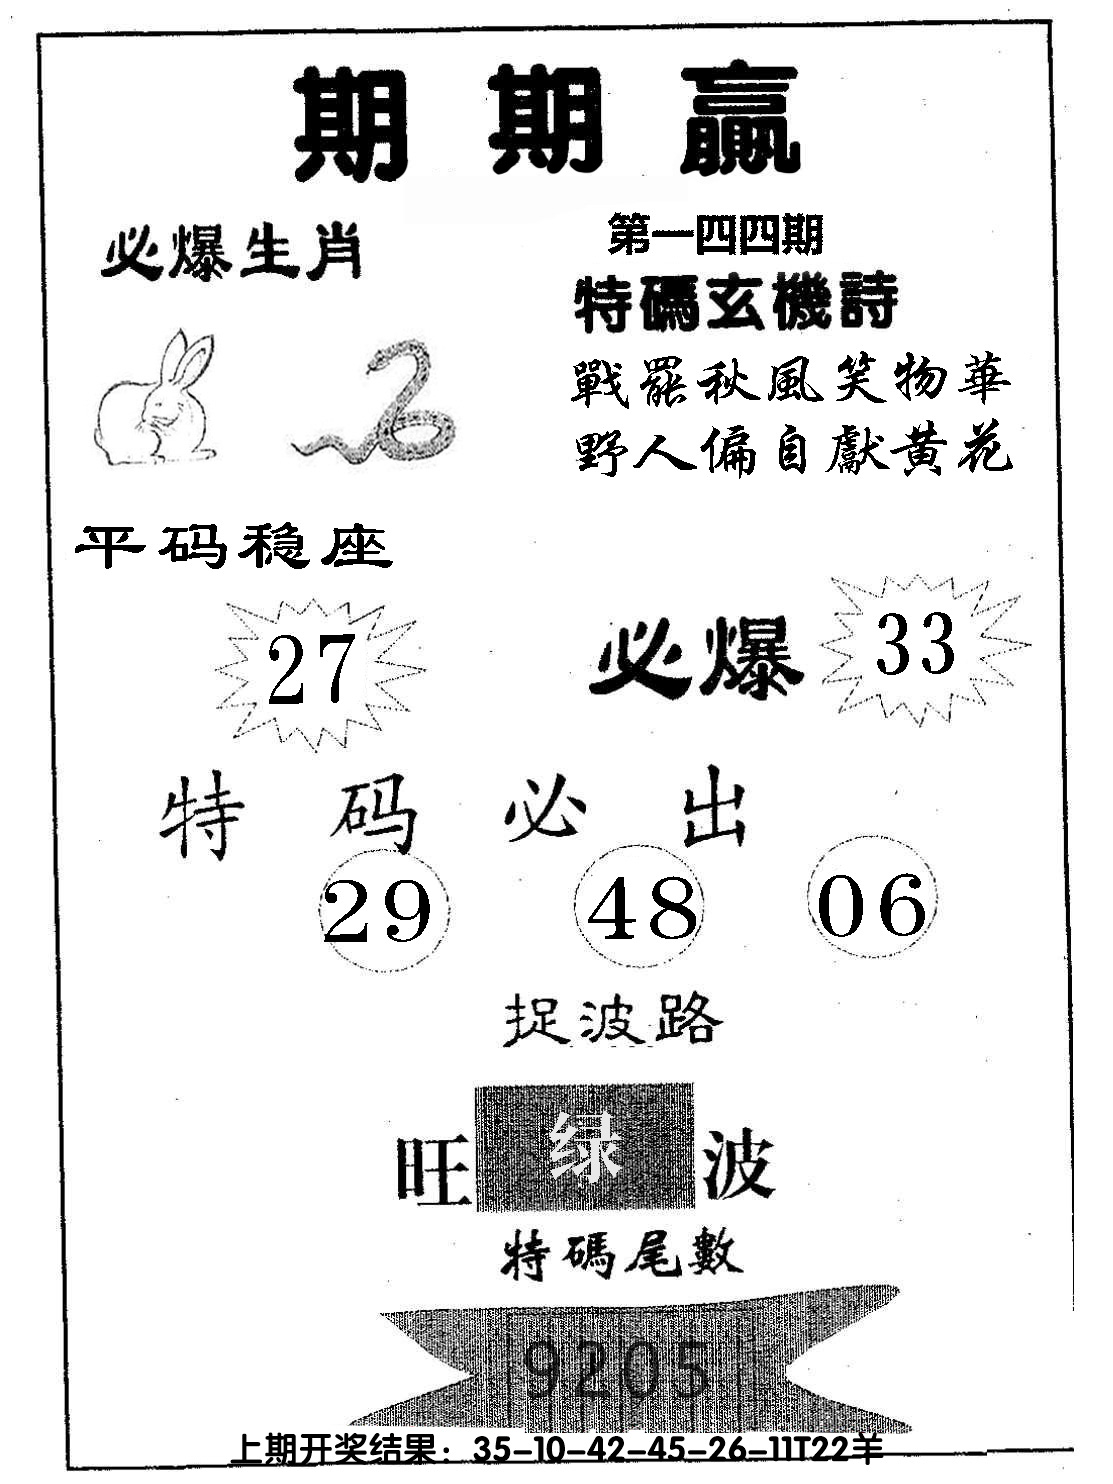 期期贏
必爆生肖
第一四四期
特碼玄機詩
戰罷秋風笑物華
野人偏自獻黄花
平码稳座
27
必爆
33
特码必出
29 48 06
捉波路
旺 绿 波
特碼尾數
9205
上期开奖结果：35-10-42-45-26-11T22羊